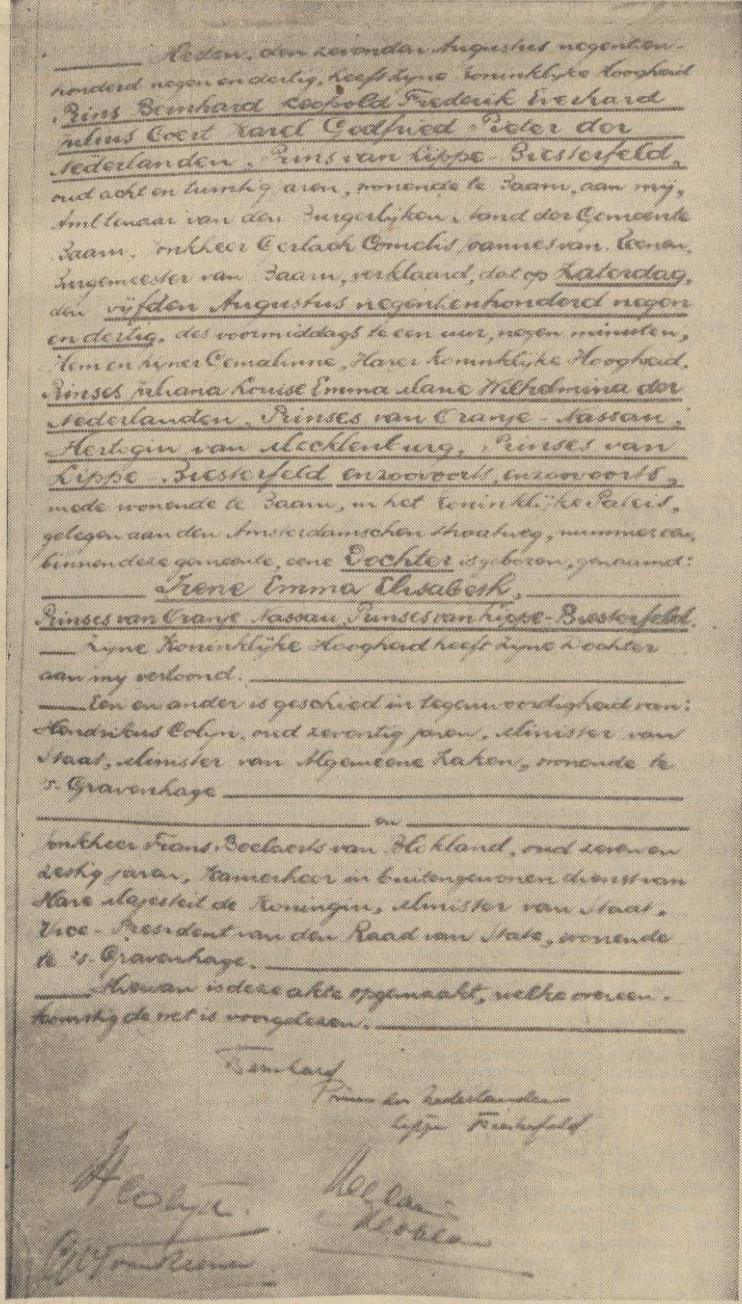 Heden, den zevenden Augustus negentien-
honderd negen en dertig, heeft Zyne Koninklijke Hoogheid
Prins Bernhard Leopold Frederik Everhard
Julius Coert Karel Godfried Pieter der
Nederlanden, Prins van Lippe-Biesterfeld,
oud acht en twintig jaren, wonende te Baarn, aan my,
Ambtenaar van den Burgerlijken Stand der Gemeente
Baarn, Jonkheer Gerlach Cornelis Joannes van Reenen,
Burgemeester van Baarn, verklaard, dat op Zaterdag,
den vijfden Augustus negentienhonderd negen
en dertig, des voormiddags te een uur, negen minuten,
Hem en Zyner Gemalinne, Harer Koninklijke Hoogheid,
Prinses Juliana Louise Emma Marie Wilhelmina der
Nederlanden, Prinses van Oranje-Nassau,
Hertogin van Mecklenburg, Prinses van
Lippe-Biesterfeld enzoovoorts, enzoovoorts,
mede wonende te Baarn, in het Koninklijke Paleis,
gelegen aan den Amsterdamschen straatweg, nummer een,
binnen deze gemeente, eene Dochter is geboren, genaamd:
Irene Emma Elisabeth,
Prinses van Oranje Nassau, Prinses van Lippe-Biesterfeld.
Zyne Koninklijke Hoogheid heeft Zyne Dochter
aan my vertoond.
Een en ander is geschied in tegenwoordigheid van:
Hendrikus Colijn, oud zeventig jaren, Minister van
Staat, Minister van Algemeene Zaken, wonende te
's-Gravenhage
en
Jonkheer Frans Beelaerts van Blokland, oud zeven en
zestig jaren, Kamerheer in buitengewonen dienst van
Hare Majesteit de Koningin, Minister van Staat,
Vice-President van den Raad van State, wonende
te 's-Gravenhage.
Hiervan is deze akte opgemaakt, welke overeen-
komstig de wet is voorgelezen.
Bernhard
Prins der Nederlanden
Lippe Biesterfeld
H Colijn
van Reenen